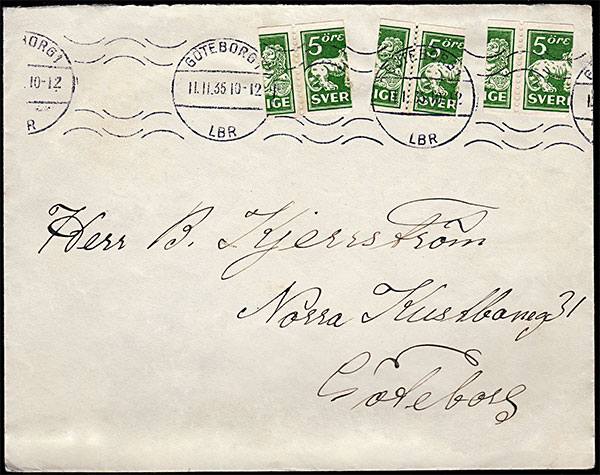 ORG 1
10-12
R
GÖTEBORG 1
11.11.35 10-12
LBR
IGE
5 ÖRE
SVER
5 ÖRE
SVER
LBR
IGE
5 ÖRE
SVER
Herr B. Kjerrström
Norra Kustbaneg 31
Göteborg